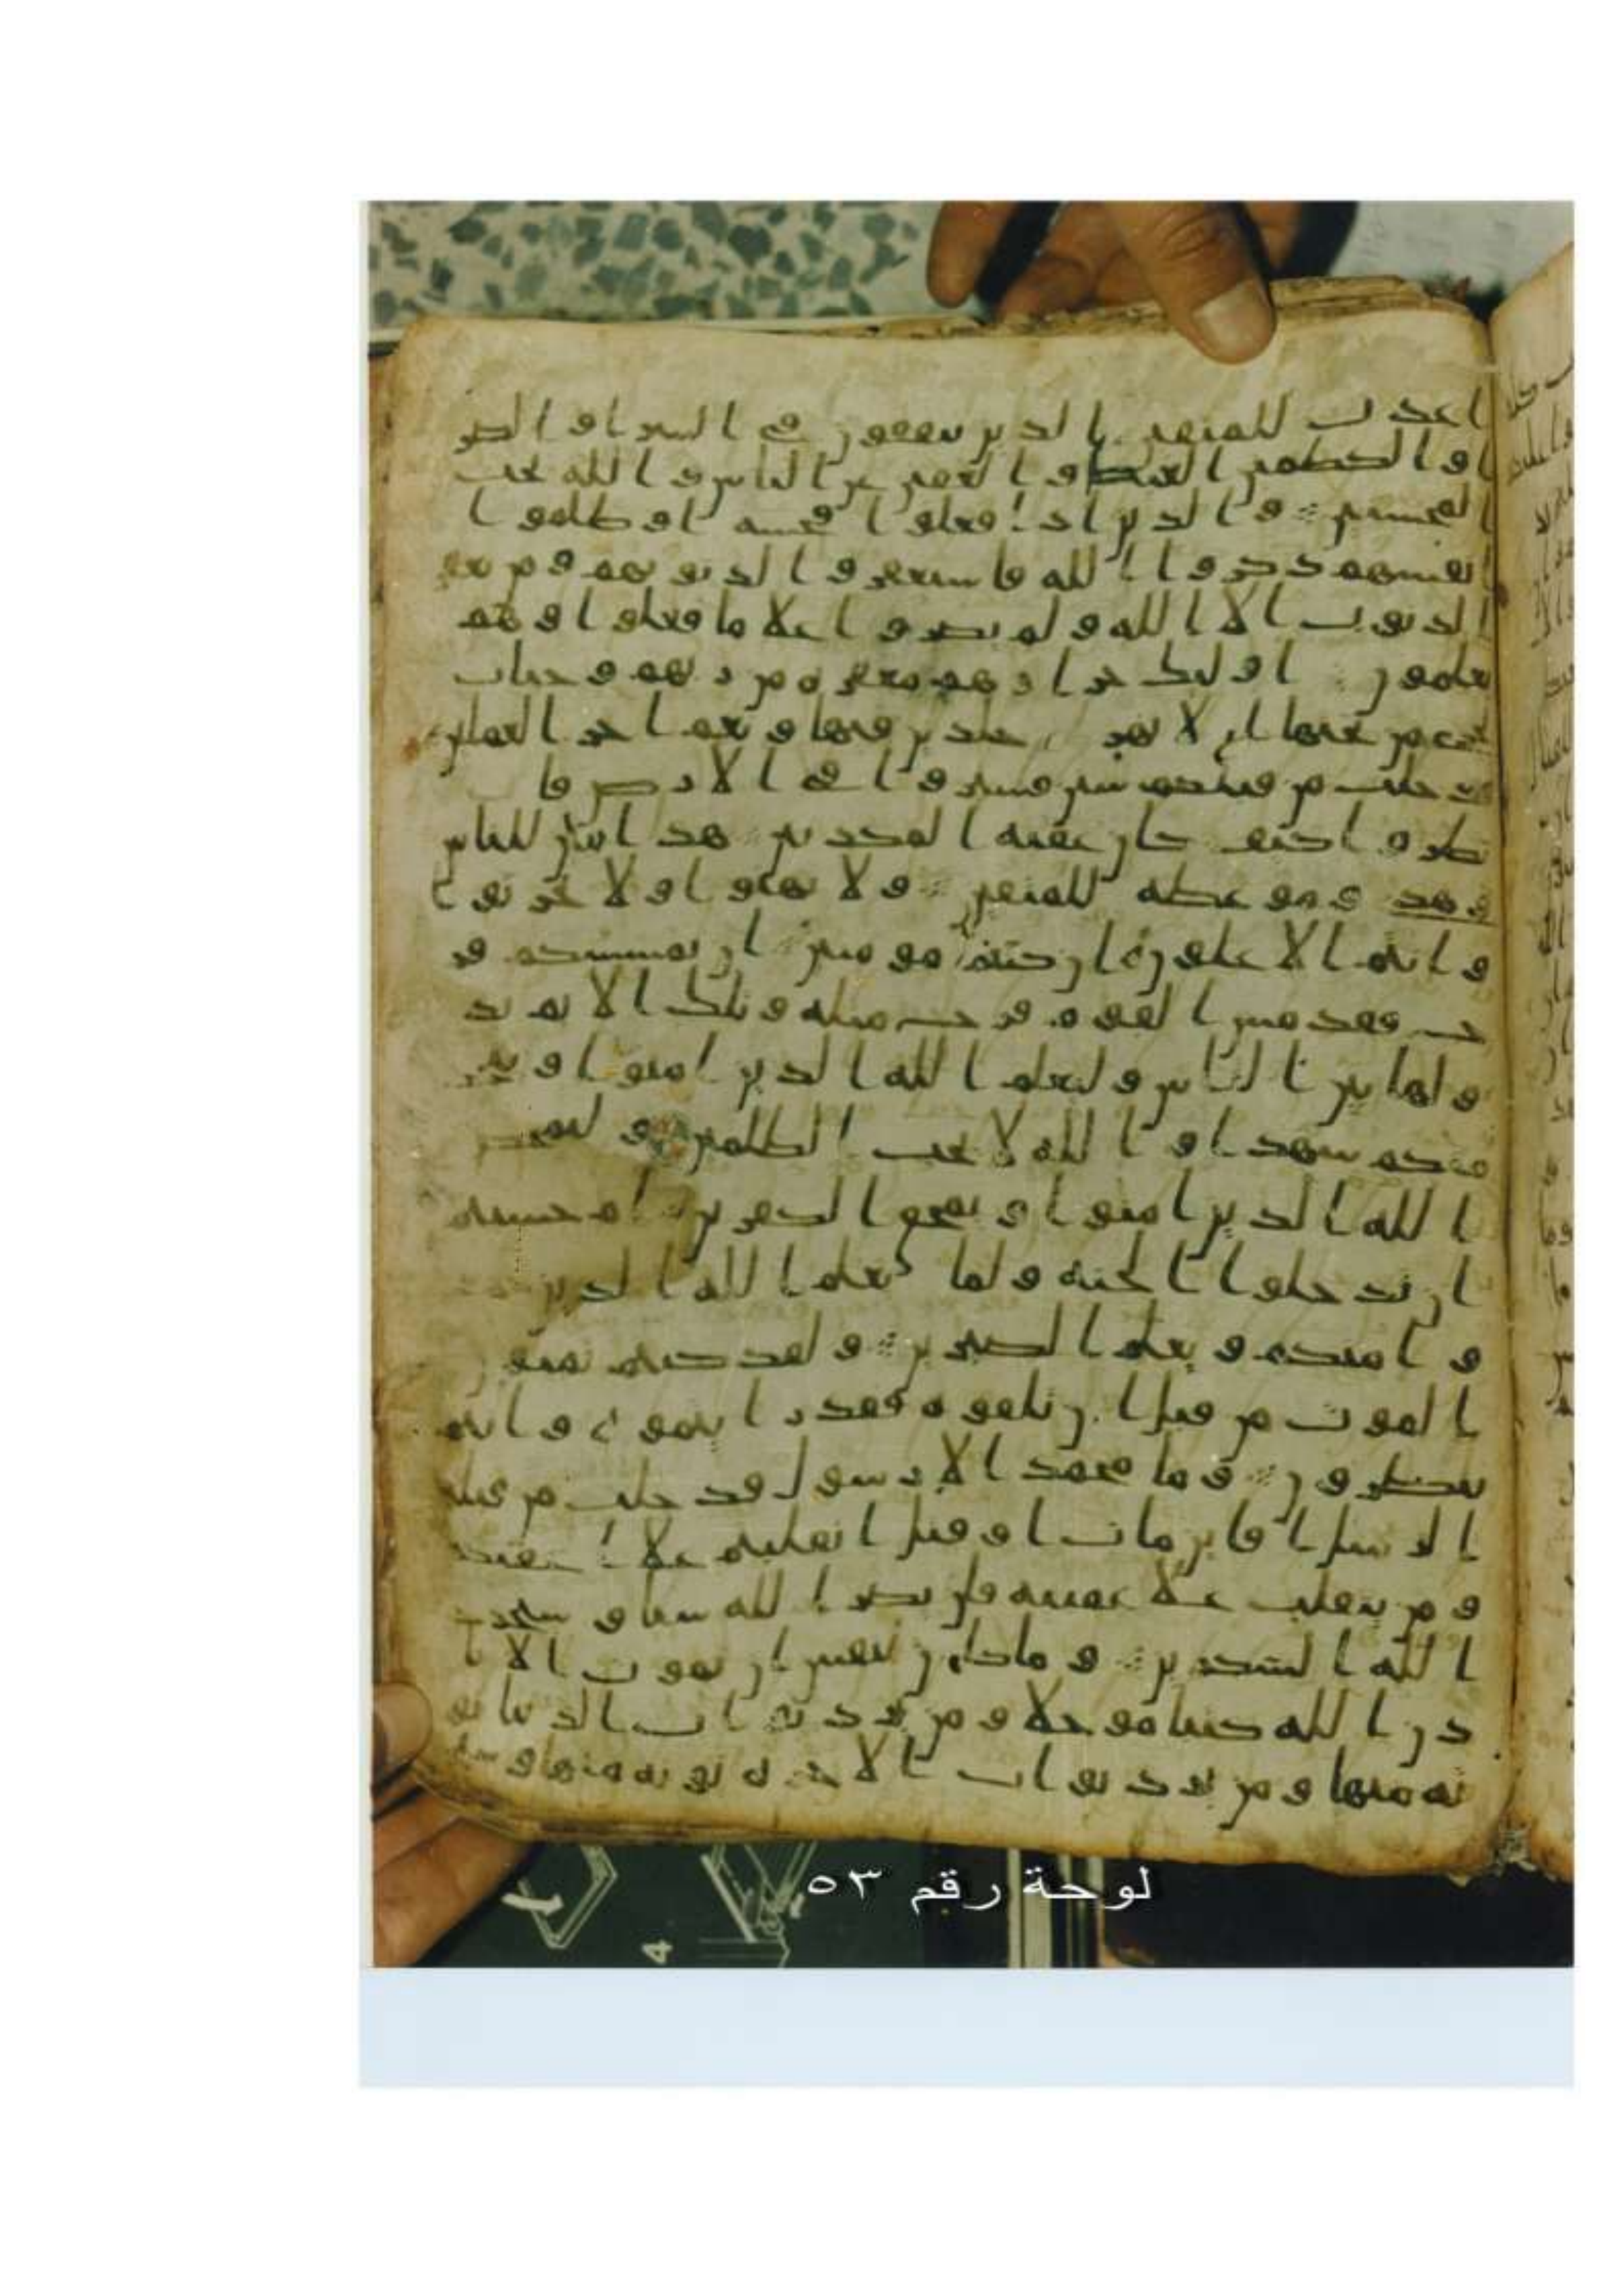 اعدت للمتقين الذين ينفقون في السرا والضر
ا والكظمين الغيظ والعفين عن الناس والله يحب
المحسنين والذين اذا فعلوا فحشه او ظلموا
انفسهم ذكروا الله فاستغفروا لذنوبهم ومن يغفر
الذنوب الا الله ولم يصروا علا ما فعلوا وهم
يعلمون اوليك جزاوهم مغفره من ربهم وجنات
تجري من تحتها الانهر خلدين فيها ونعم اجر العملين
قد خلت من قبلكم سنن فسيروا في الارض فا
نظروا كيف كان عقبه المكذبين هذا بين للناس
وهدى وموعظه للمتقين ولا تهنوا ولا تحزنوا
وانتم الاعلون ان كنتم مومنين ان يمسسكم قر
ح فقد مس القوم قرح مثله وتلك الايم ند
ولها بين الناس وليعلم الله الذين امنوا ويتخذ
منكم شهدا والله لا يحب الظلمين وليمحص
الله الذين امنوا ويمحق الكفرين ام حسبتم
ان تدخلوا الجنه ولما يعلم الله الذين
وا منكم ويعلم الصبرين ولقد كنتم تمنون
الموت من قبل ان تلقوه فقد رايتموه وانتم
تنظرون وما محمد الا رسول قد خلت من قبله
الرسل افاين مات او قتل انقلبتم علا اعقبكم
ومن ينقلب علا عقبيه فلن يضر الله شيا وسيجزي
الله الشكرين وما كان لنفس ان تموت الا با
ذن الله كتبا موجلا ومن يرد ثواب الدنيا نو
ته منها ومن يرد ثواب الاخره نوته منها وسن
لوحة رقم ٥٣
4